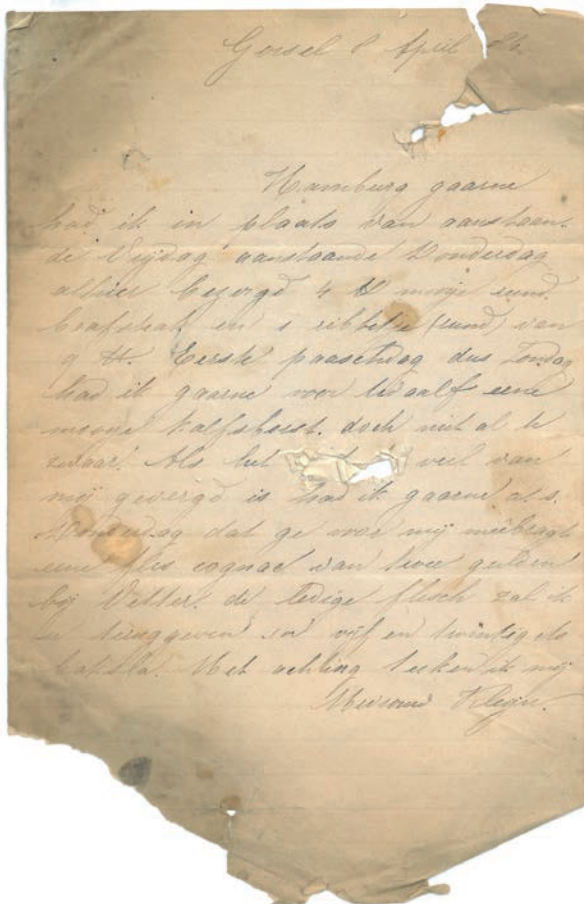 Gorssel 8 April 86.
Hamburg gaarne
had ik in plaats van aanstaan-
de Vrijdag aanstaande Donderdag
alhier bezorgd 4 ℔ mooije rund
en 1 ribbetje (rund) van
9 ℔. Eerste paaschdag dus Zondag
had ik gaarne voor twaalf eene
mooije kalfsborst. doch niet al te
zwaar. Als het veel van
mij gevergd is had ik gaarne a.s.
Donderdag dat ge voor mij meêbragt
eene fles cognac van twee gulden
bij Vetter. de ledige flesch zal ik
u teruggeven en vijf en twintig cts
Met achting teeken ik mij
Mevrouw Kleyn.